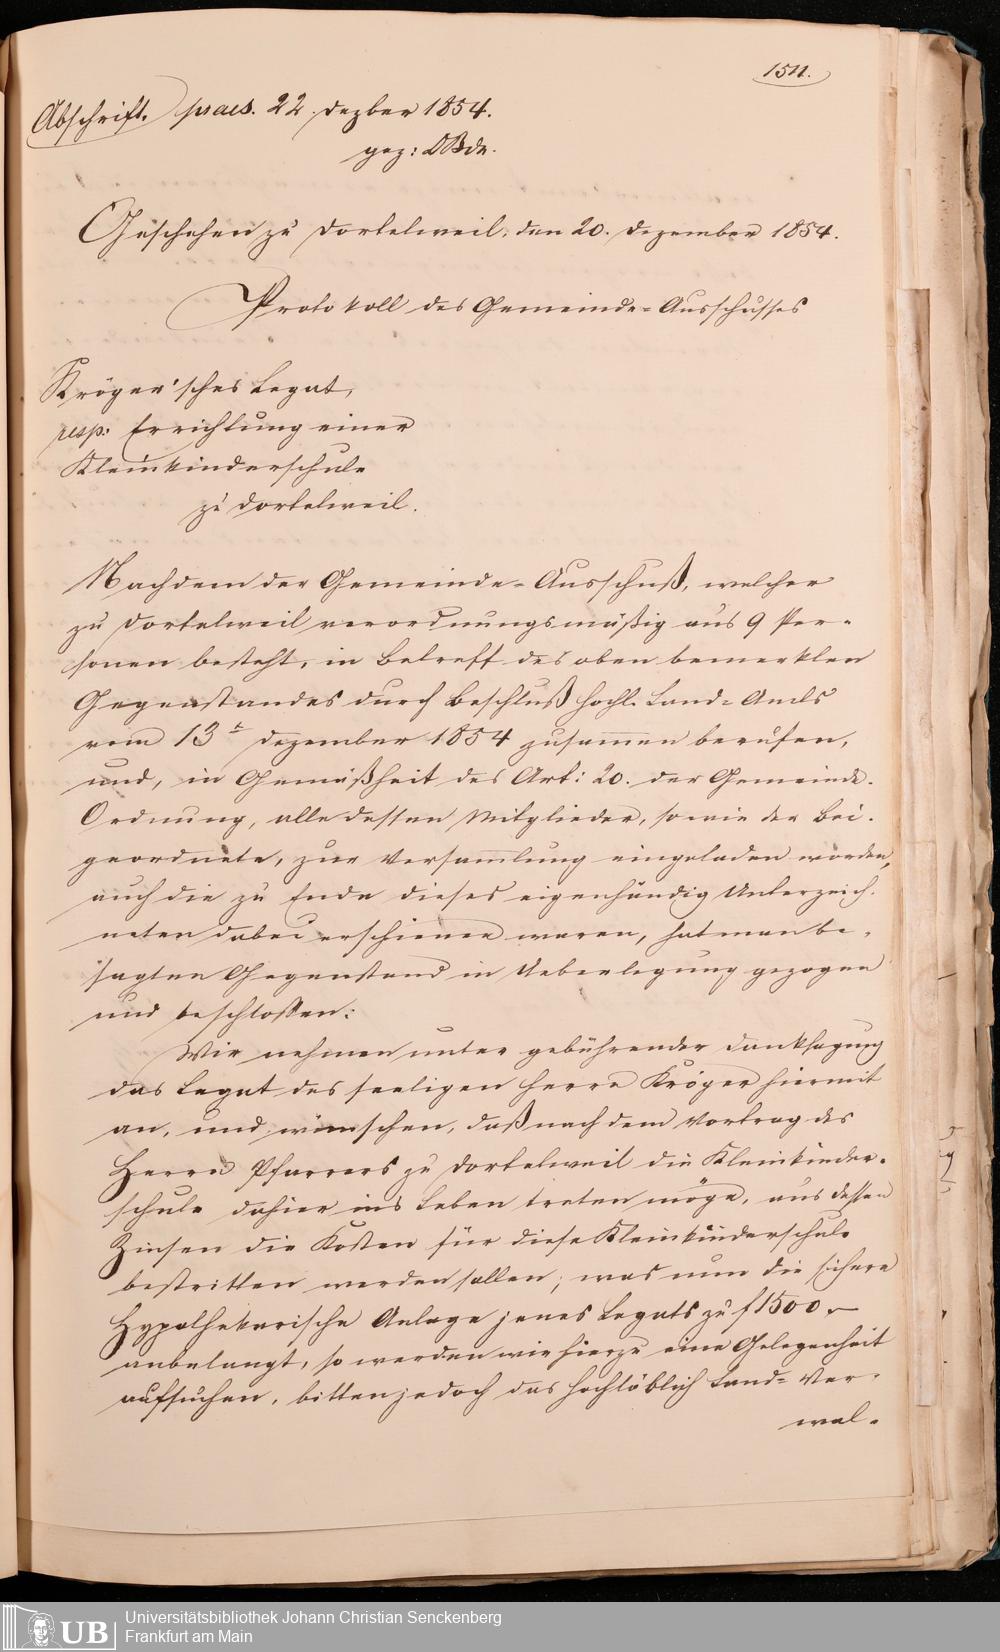 1511.
Abschrift. praes. 22. Dezber 1854.
gez:
Geschehen zu Dortelweil, den 20. Dezember 1854.
Protokoll des Gemeinde-Ausschusses
Kröger'sches Legat,
resp: Errichtung einer
Kleinkinderschule
zu Dortelweil.
Nachdem der Gemeinde-Ausschuß, welcher
zu Dortelweil verordnungsmäßig aus 9 Per-
sonen besteht, in Betreff des oben bemerkten
Gegenstandes durch Beschluß hochl. Land-Amts
vom 13t Dezember 1854 zusammen berufen,
und, in Gemäßheit des Art: 20. der Gemeinde-
Ordnung, alle dessen Mitglieder, sowie der Bei-
geordnete, zur Versammlung eingeladen worden,
auch die zu Ende dieses eigenhändig Unterzeich-
neten dabei erschienen waren, hat man be-
sagten Gegenstand in Ueberlegung gezogen
und beschlossen:
Wir nehmen unter gebührender Danksagung
das Legat des seeligen Herrn Kröger hiermit
an, und wünschen, daß nach dem Vortrag des
Herrn Pfarrers zu Dortelweil die Kleinkinder-
schule dahier ins Leben treten möge, aus dessen
Zinsen die Kosten für diese Kleinkinderschule
bestritten werden sollen; was nun die sichere
Hypothekarische Anlage jenes Legats zu f 1500 –
anbelangt, so werden wir hierzu eine Gelegenheit
aufsuchen, bitten jedoch das hochlöblich Land-Ver-
wal-
UB
Universitätsbibliothek Johann Christian Senckenberg
Frankfurt am Main